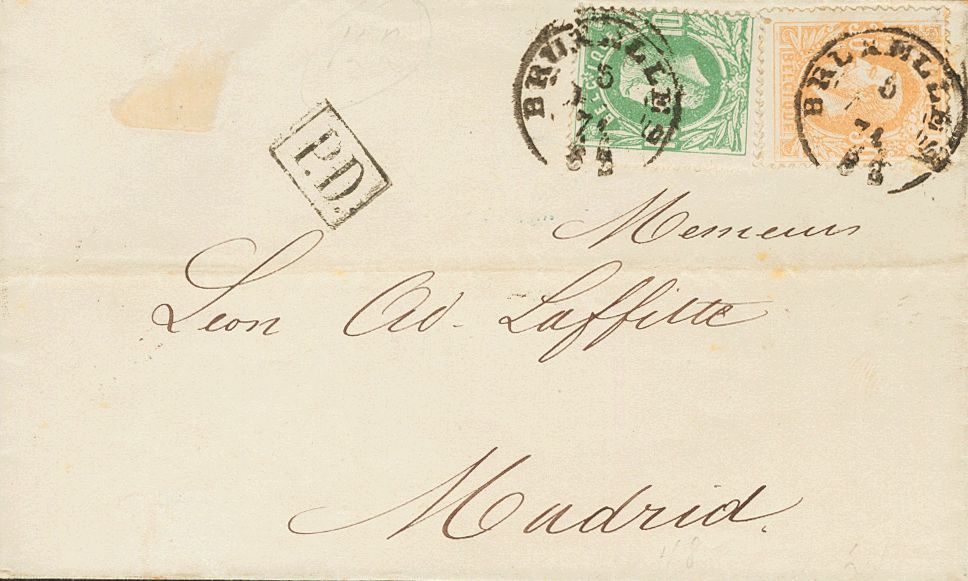 BRUXELLES
BRUXELLES
P.D.
BELGIQUE
Messieurs
Leon Ad. Laffitte
Madrid.